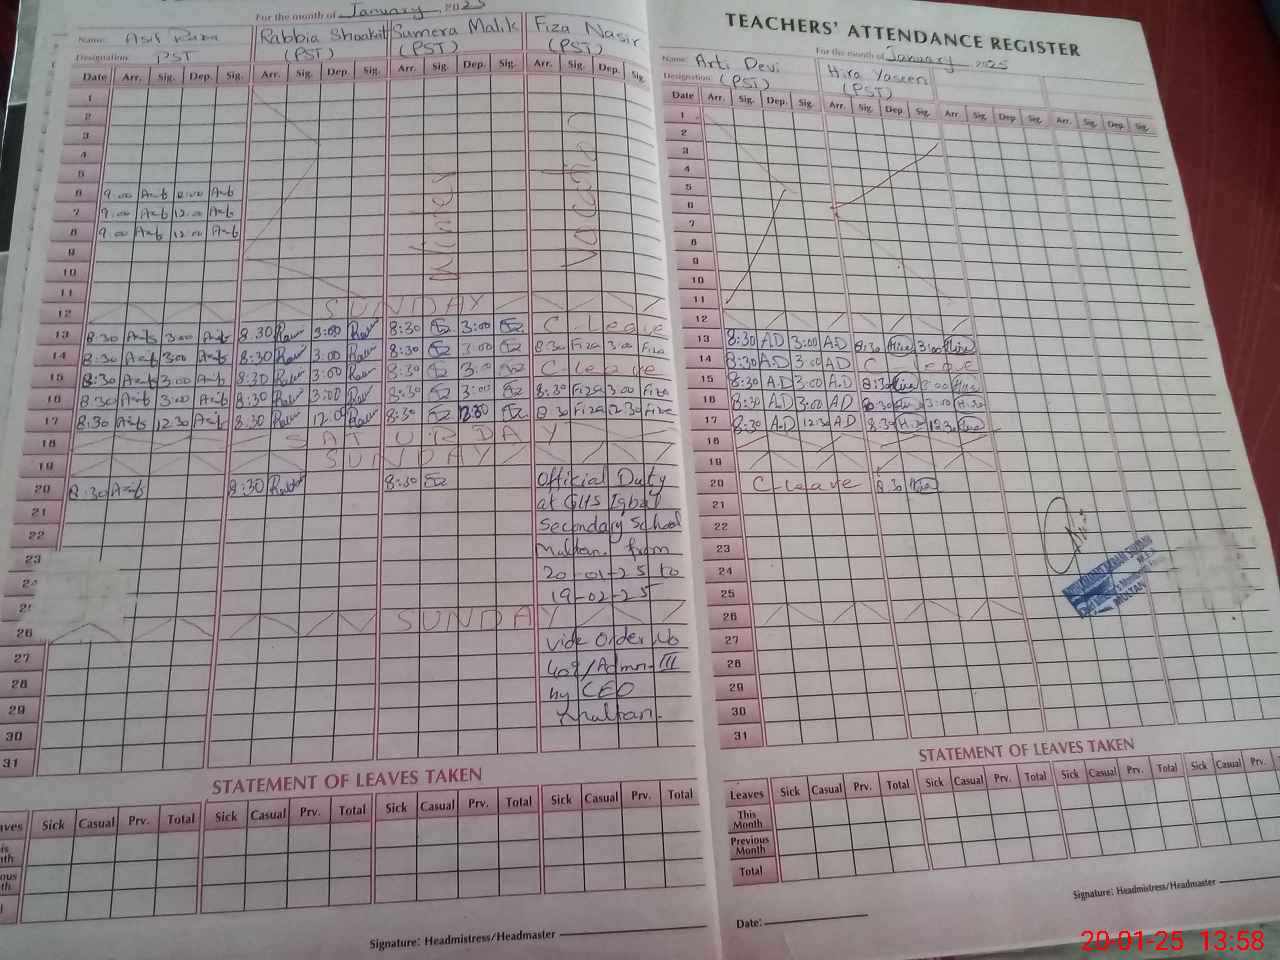 For the month of January 2025
Name: Asif Raza Rabbia Shoakit Sumera Malik Fiza Nasir
Designation: PST (PST) (PST) (PST)
Date Arr. Sig. Dep. Sig. Arr. Sig. Dep. Sig. Arr. Sig. Dep. Sig. Arr. Sig. Dep. Sig.
1
2
3
4
5
6 9.00 12.00
7 9.00 12.00
8 9.00 12.00
9
10
11
Winter Vacation
12 SUNDAY
13 8:30 3:00 8:30 3:00 8:30 3:00 C-Leave
14 8:30 3:00 8:30 3:00 8:30 3:00 8:30 Fiza 3:00 Fiza
15 8:30 3:00 8:30 3:00 8:30 3:00 C Leave
16 8:30 3:00 8:30 3:00 8:30 3:00 8:30 Fiza 3:00 Fiza
17 8:30 12:30 8:30 12:00 8:30 8:30 Fiza 12:30 Fiza
18 SATURDAY
19 SUNDAY
20 8:30 8:30 8:30 Official Duty
21 at GHS Iqbal
22 Secondary School
23 Multan. from
24 20-01-25 to
25 19-02-25
26 SUNDAY
27 vide Order No
28 409/Admn-III
29 by CEO
30 Multan.
31
STATEMENT OF LEAVES TAKEN
Sick Casual Prv. Total Sick Casual Prv. Total Sick Casual Prv. Total Sick Casual Prv. Total
Signature: Headmistress/Headmaster
TEACHERS' ATTENDANCE REGISTER
For the month of January 2025
Name: Arti Devi Hira Yaseen
Designation: (PST) (PST)
Date Arr. Sig. Dep. Sig. Arr. Sig. Dep. Sig. Arr. Sig. Dep. Sig. Arr. Sig. Dep. Sig.
1
2
3
4
5
6
7
8
9
10
11
12
13 8:30 AD 3:00 AD 8:30 Hira 3:00 Hira
14 8:30 A.D 3:00 AD
15 8:30 A.D 3:00 A.D 8:30 Hira 3:00 Hira
16 8:30 A.D 3:00 AD 8:30 Hira 3:00 Hira
17 8:30 A.D 12:30 AD 8:30 Hira 12:30 Hira
18
19
20 C-leave 8:30 Hira
21
22
23
24
25
26
27
28
29
30
31
MULTAN
STATEMENT OF LEAVES TAKEN
Leaves Sick Casual Prv. Total Sick Casual Prv. Total Sick Casual Prv. Total Sick Casual Prv.
This Month
Previous Month
Total
Signature: Headmistress/Headmaster
Date:
20-01-25 13:58